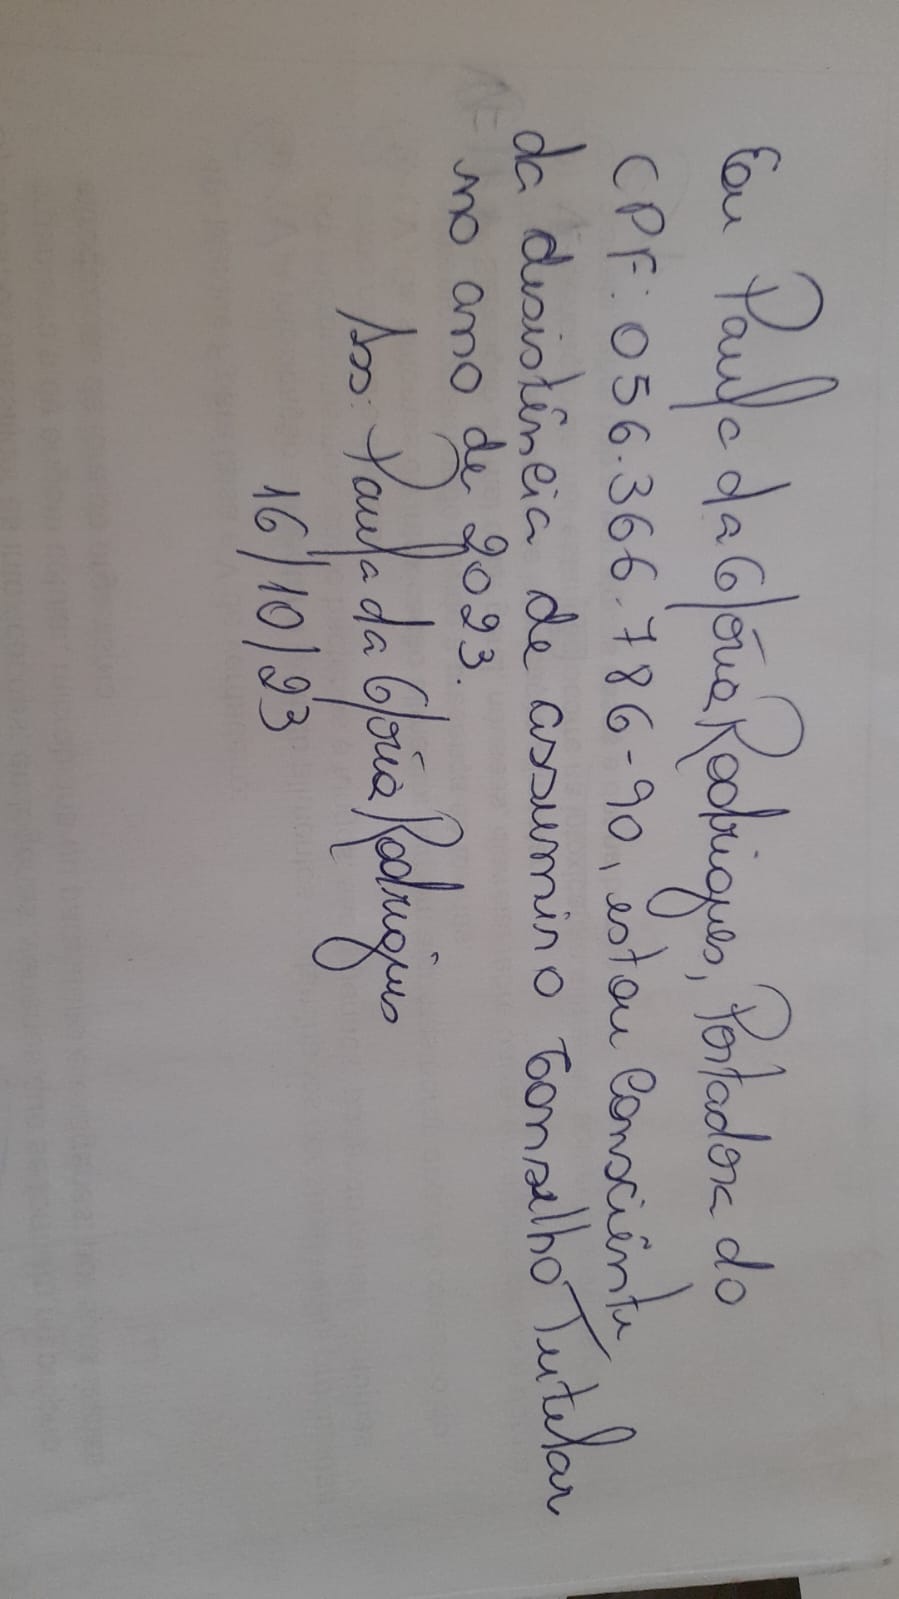 Eu Paula da Glória Rodrigues, Portadora do
CPF: 056.366.786-90, estou Consciênte
da desistência de assumir o Conselho Tutelar
no ano de 2023.
Ass: Paula da Glória Rodrigues
16/10/23